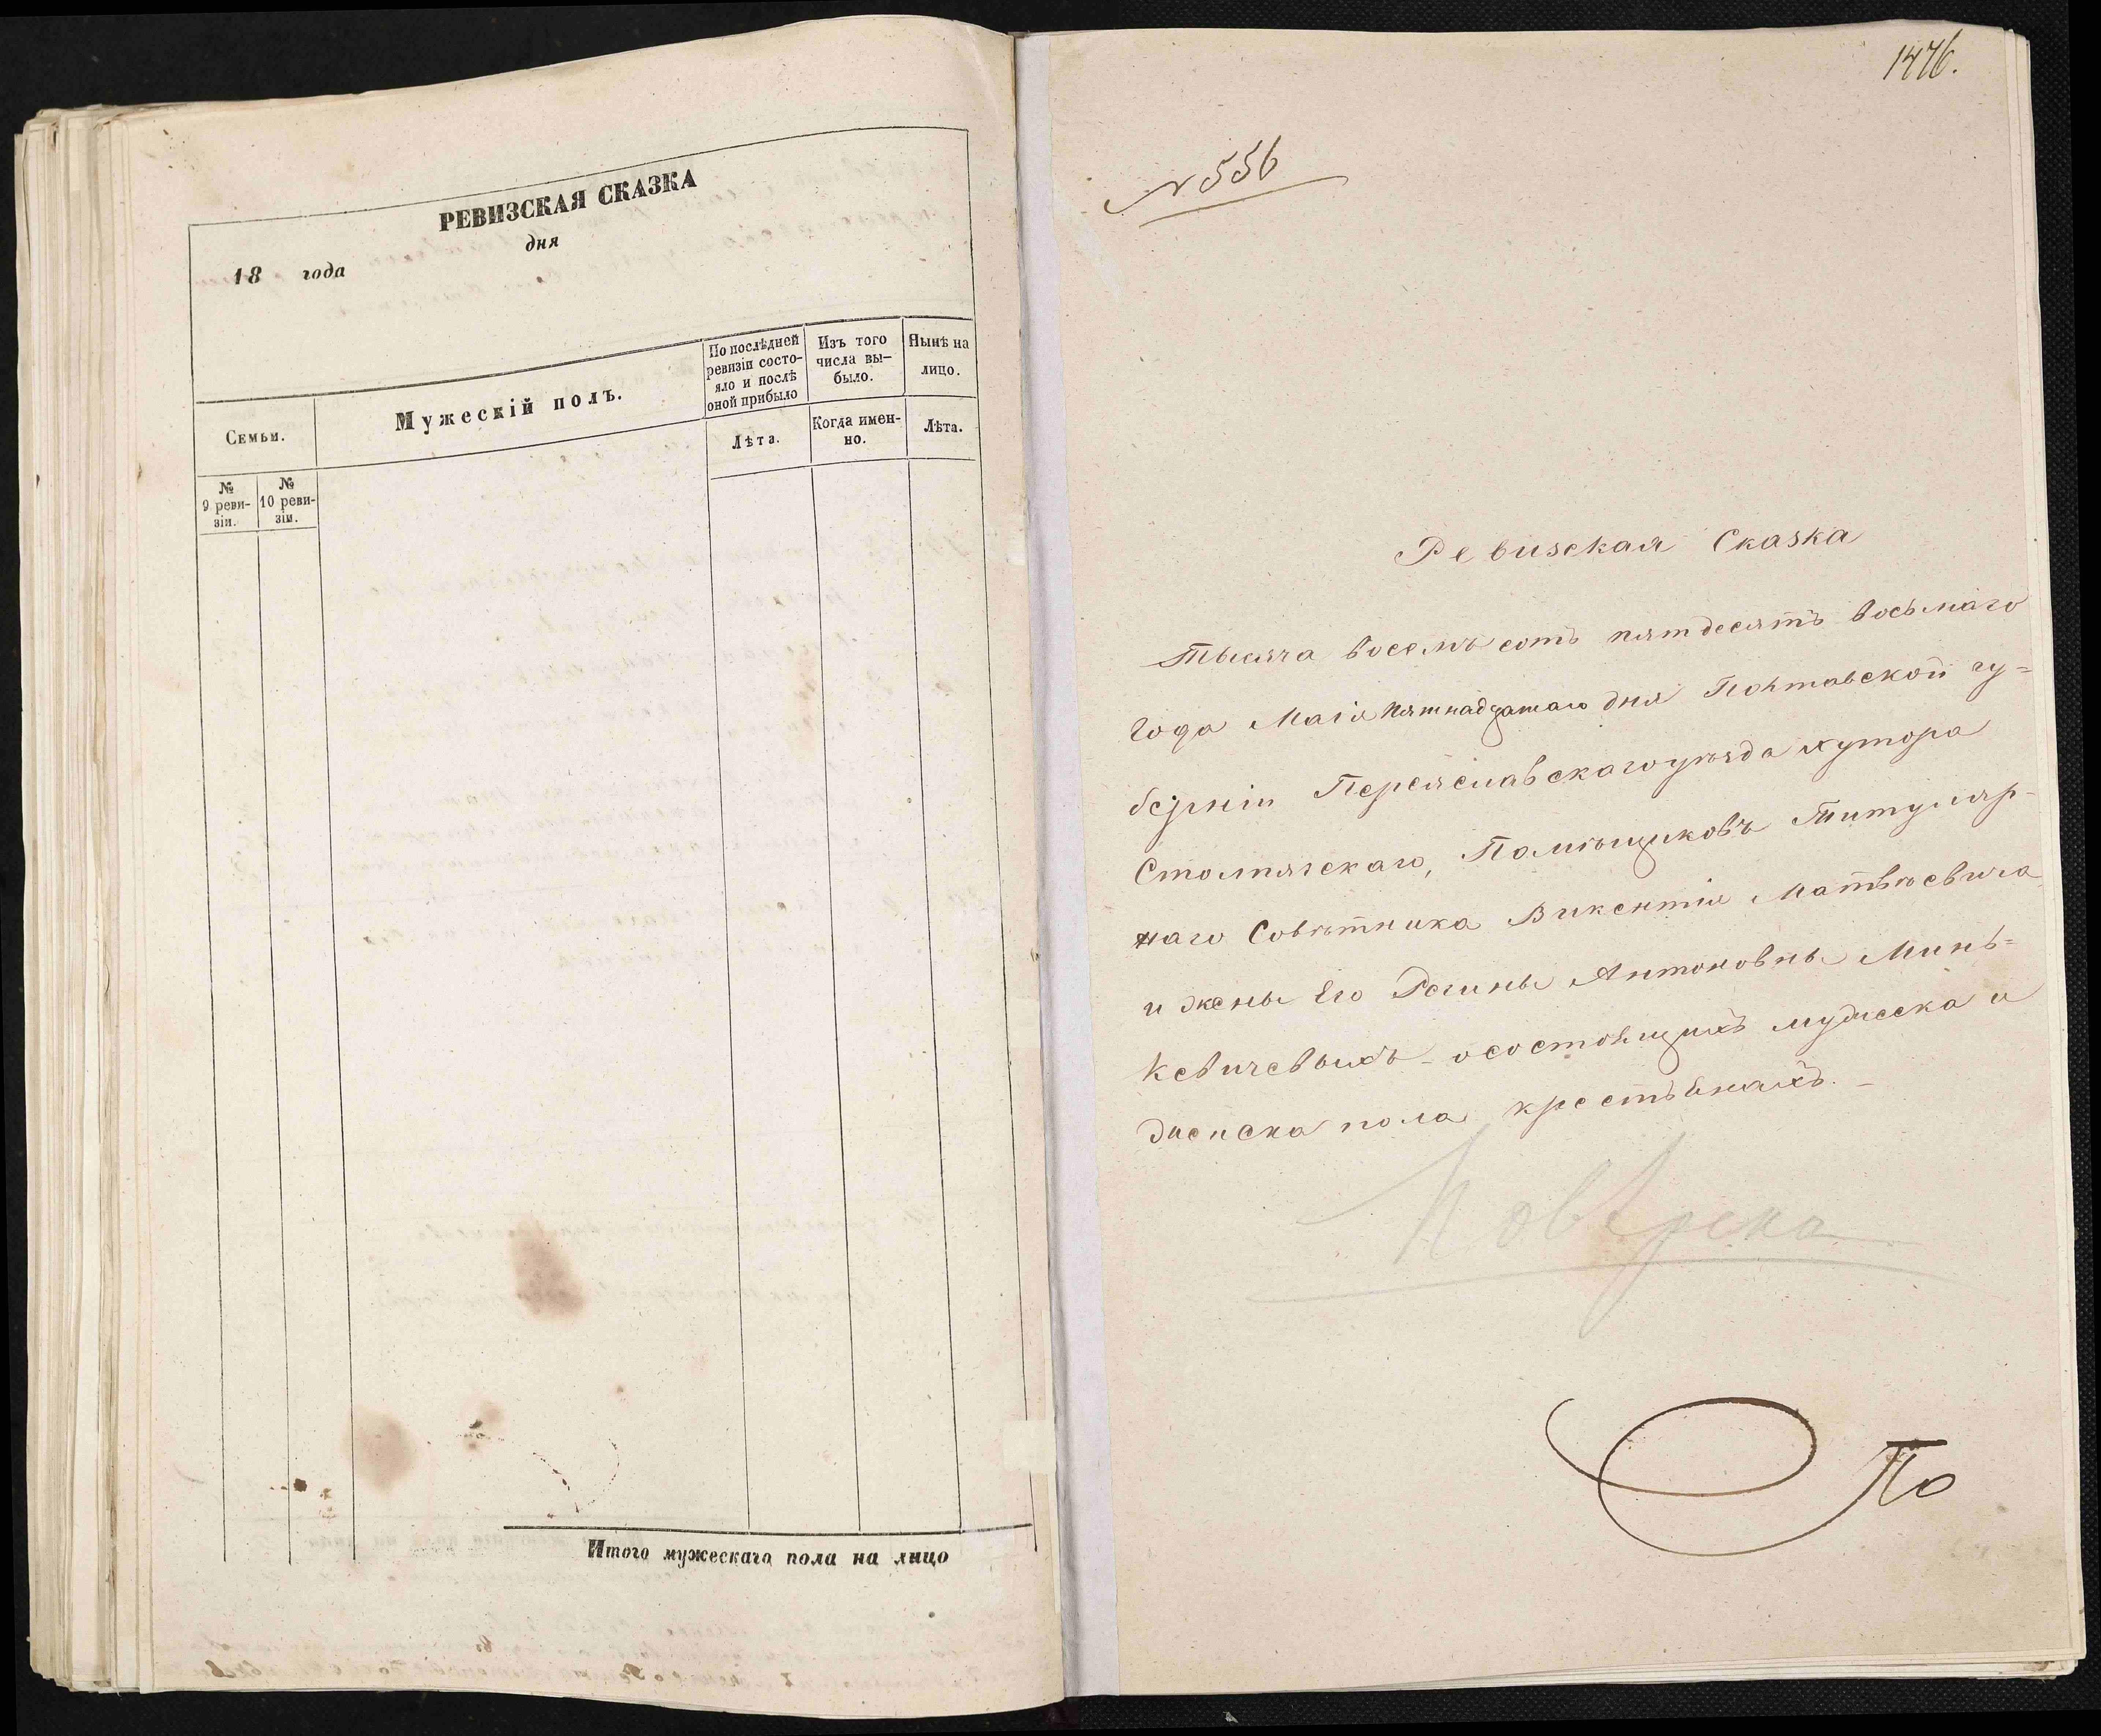 РЕВИЗСКАЯ СКАЗКА
дня
18 года
Семьи.
Мужескій полъ.
По послѣдней ревизіи состояло и послѣ оной прибыло
Изъ того числа вы-было.
Нынѣ на лицо.
Лѣта.
Когда имен-но.
Лѣта.
№ 9 реви-зіи.
№ 10 реви-зіи.
Итого мужескаго пола на лицо
1476.
N 556
Ревизская Сказка
Тысяча восемъ сотъ пятдесятъ восьмаго
Года Маія Пятнадцатаго дня Полтавской гу=
берніи Переяславскаго уѣзда хутора
Столпягскаго, Помѣщиковъ Титуляр-
наго Совѣтника Викентія Матвѣевича
и жены Его Регины Антоновны Минь=
кевичевыхъ - осостоящихъ мужеска и
женска пола крестьянахъ. -
Повѣрена
По